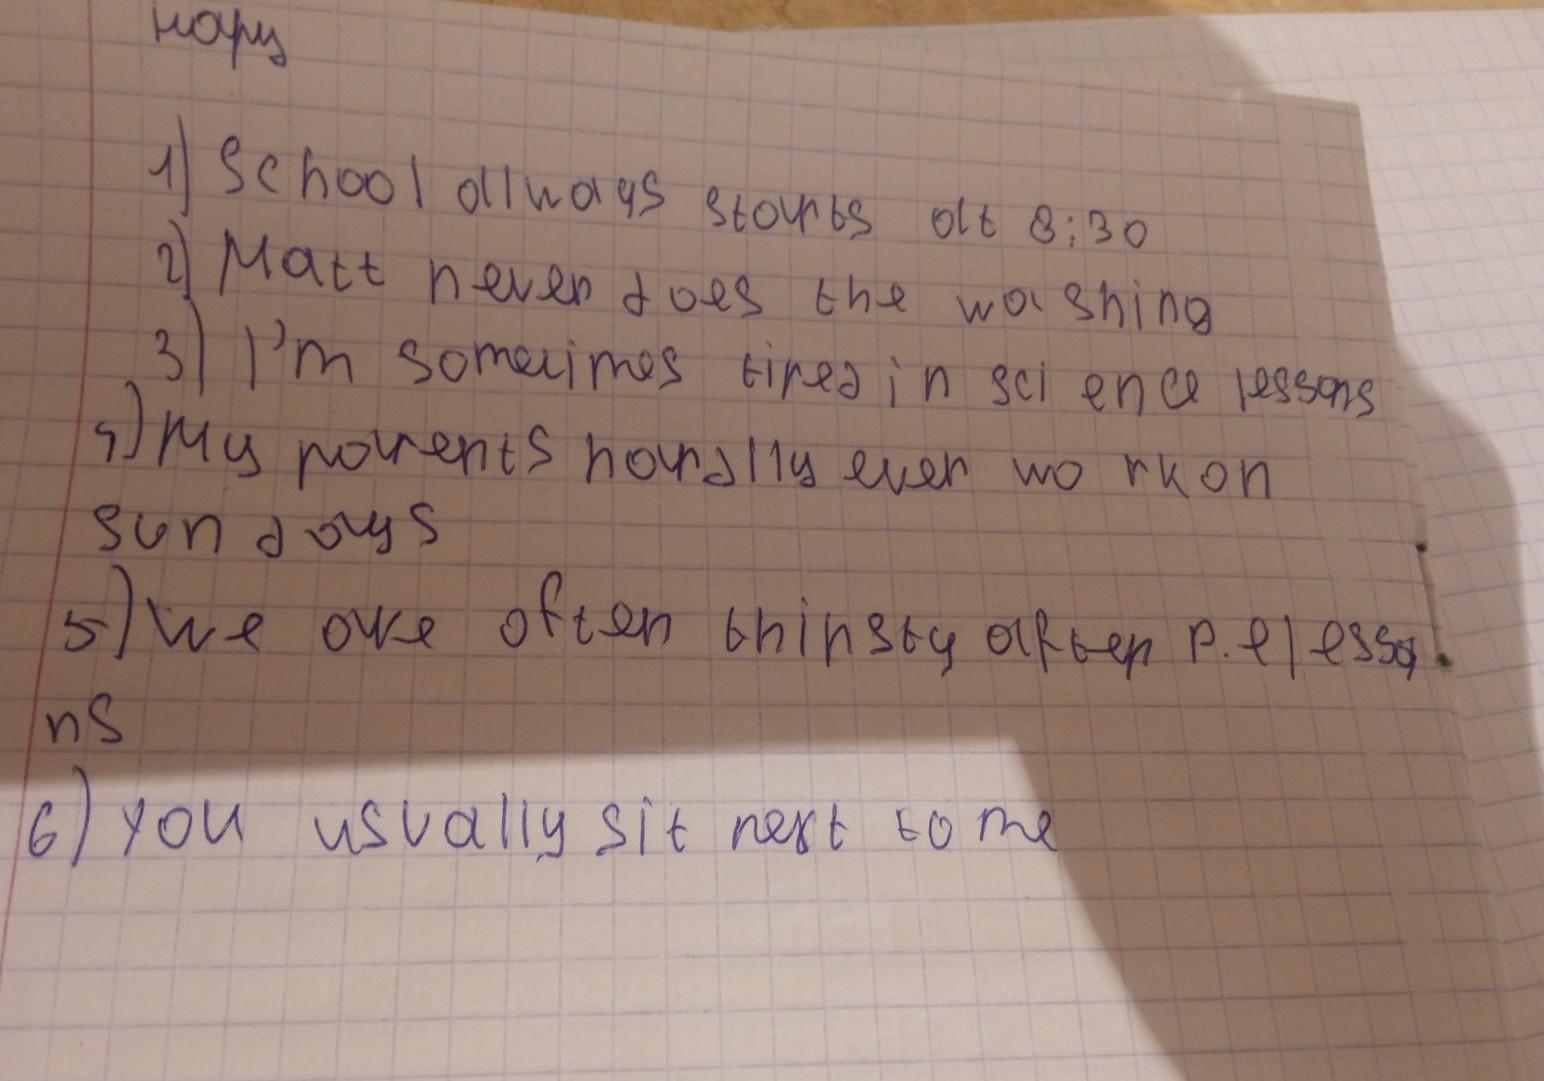 1) School allways starts at 8:30
2) Matt never does the washing
3) I'm someimes tired in science lessons
4) My parents hardlly ever work on
sundays
5) We are often thirsty after p.e lesso
ns
6) you usually sit next to me